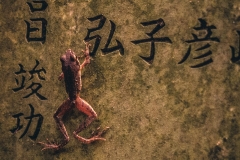 彦
子
弘
昌
竣功